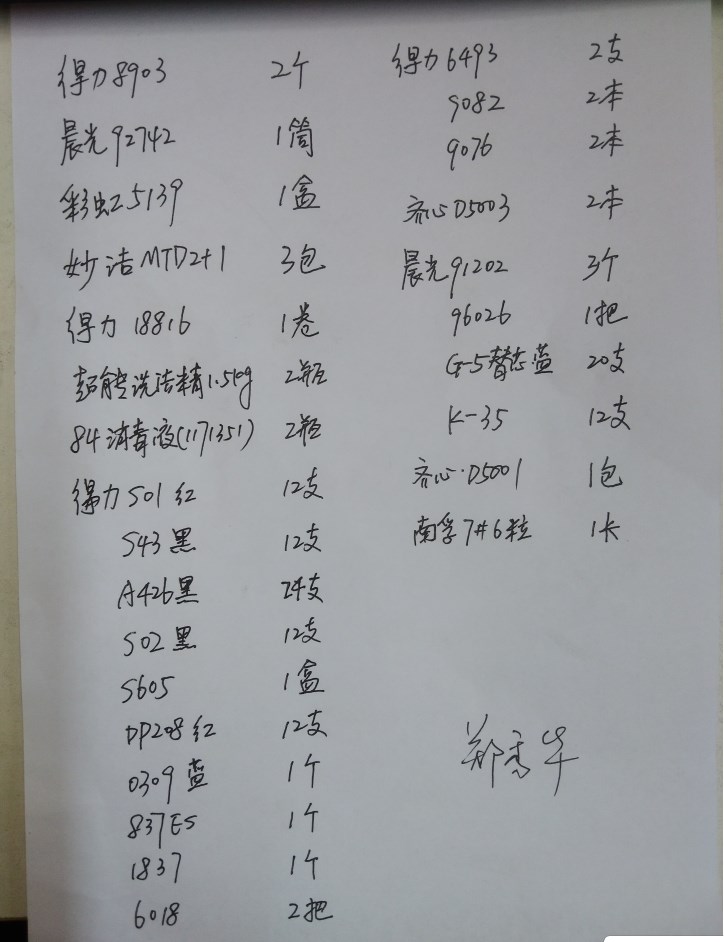 得力8903 2个
晨光92742 1筒
彩虹5139 1盒
妙洁MTD2+1 3包
得力18816 1卷
超能洗洁精1.5kg 2瓶
84消毒液(1171351) 2瓶
得力S01红 12支
S43黑 12支
A426黑 24支
S02黑 12支
S605 1盒
DP208红 12支
0309蓝 1个
837ES 1个
1837 1个
6018 2把
得力6493 2支
9082 2本
9076 2本
齐心D5003 2本
晨光91202 3个
96026 1把
G-5替芯蓝 20支
K-35 12支
齐心·D5001 1包
南孚7#6粒 1卡
郑秀华